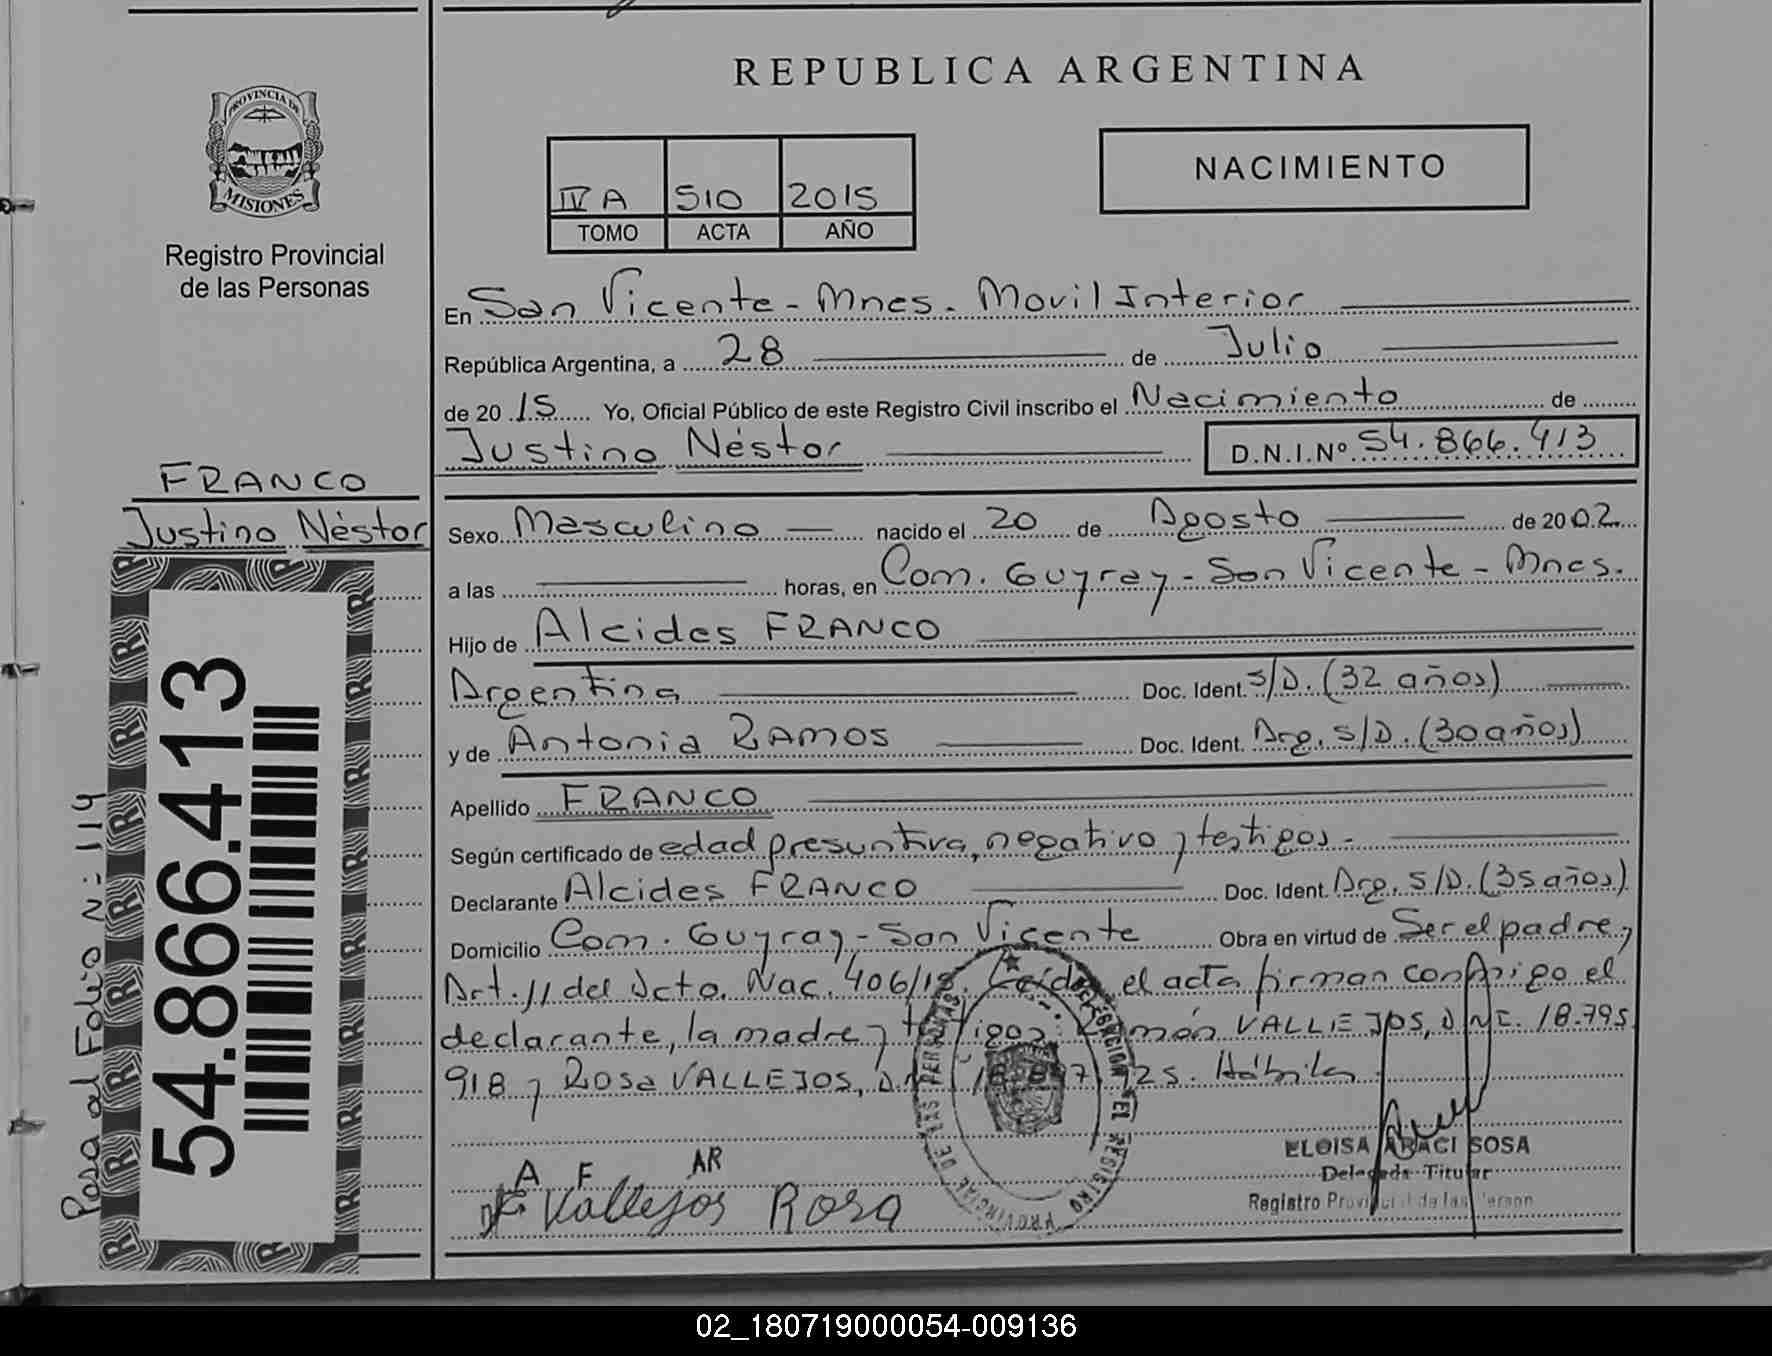 REPUBLICA ARGENTINA
PROVINCIA DE
MISIONES
Registro Provincial
de las Personas
NACIMIENTO
IV A 510 2015
TOMO ACTA AÑO
En San Vicente - Mnes. Movil Interior
República Argentina, a 28 de Julio
de 20 15 Yo, Oficial Público de este Registro Civil inscribo el Nacimiento de
Justino Néstor D.N.I.Nº 54.866.413
FRANCO
Justino Néstor
Sexo Masculino nacido el 20 de Agosto de 2002
a las horas, en Com. Guyray - San Vicente - Mnes.
Hijo de Alcides FRANCO
Argentina Doc. Ident. S/D. (32 años)
y de Antonia RAMOS Doc. Ident. Arg. S/D. (30 años)
Apellido FRANCO
Según certificado de edad presuntiva, negativo y testigos.
Declarante Alcides FRANCO Doc. Ident. Arg. S/D. (35 años)
Domicilio Com. Guyray - San Vicente Obra en virtud de Ser el padre y
Art. 11 del Dcto. Nac. 406/15. Leída el acta firman conmigo el
declarante, la madre y testigos Ramón VALLEJOS, DNI. 18.795.
918 y Rosa VALLEJOS, 125. Hábiles
54.866.413
Pasa al Folio Nº 119
A F AR
Vallejos Rosa
PROVINCIAL DE LAS PERSONAS
DELEGACION EL REGISTRO
ELOISA ARACI SOSA
Delegada Titular
Registro Provincial de las Person
02_180719000054-009136